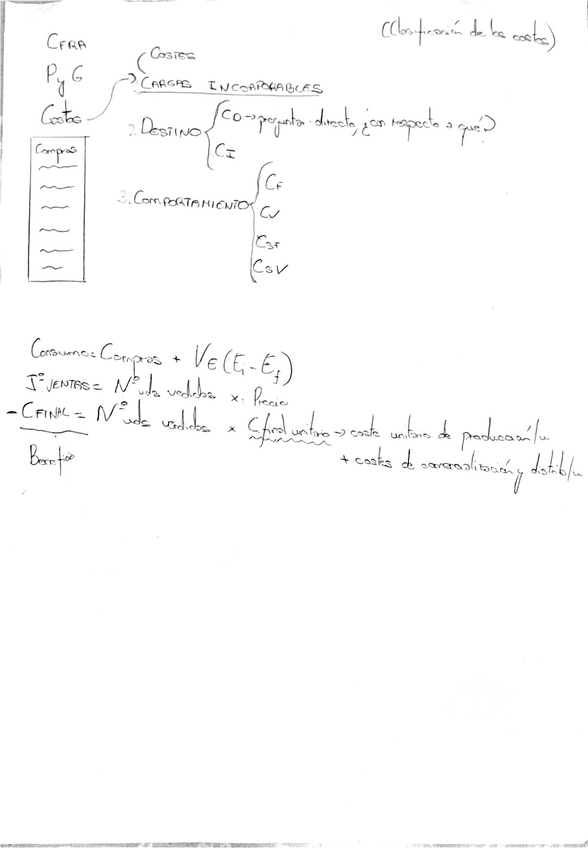 (Clasificación de los costes)
CFRA
P y G
Costes
Compras
COSTES
1. CARGAS INCORPORABLES
2. DESTINO
CD → preguntar directo, ¿con respecto a qué?
CI
3. COMPORTAMIENTO
CF
CV
CSF
CSV
Consumo = Compras + VE (Ei - Ef)
Iº VENTAS = Nº uds vendidas x Precio
- CFINAL = Nº uds vendidas x Cfinal unitario → coste unitario de producción/u
+ costes de comercialización y distrib/u
Beneficio